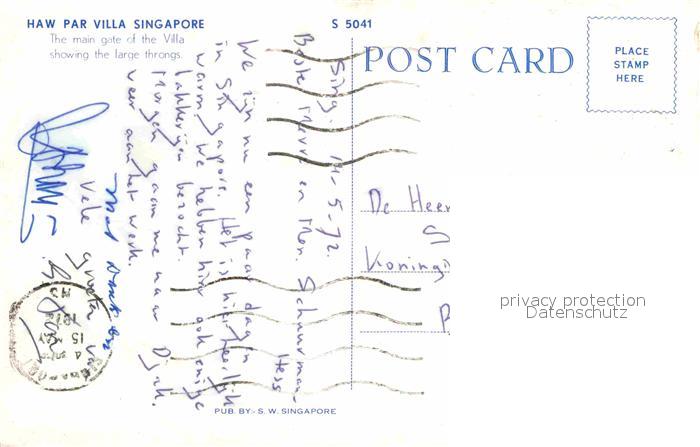 HAW PAR VILLA SINGAPORE
The main gate of the Villa
showing the large throngs.
S 5041
POST CARD
PLACE
STAMP
HERE
Sing. 14-5-72.
Beste Meneer en Mevr. Schuurman-
Hess
We zijn nu een paar dagen
in Singapore. Het is hier heerlijk
warm. We hebben hier ook enige
bezocht.
Morgen gaan we naar
weer aan het werk.
Vele
groeten van
De Heer
S
Konings
P
privacy protection
Datenschutz
15 MAY
PUB. BY:- S. W. SINGAPORE